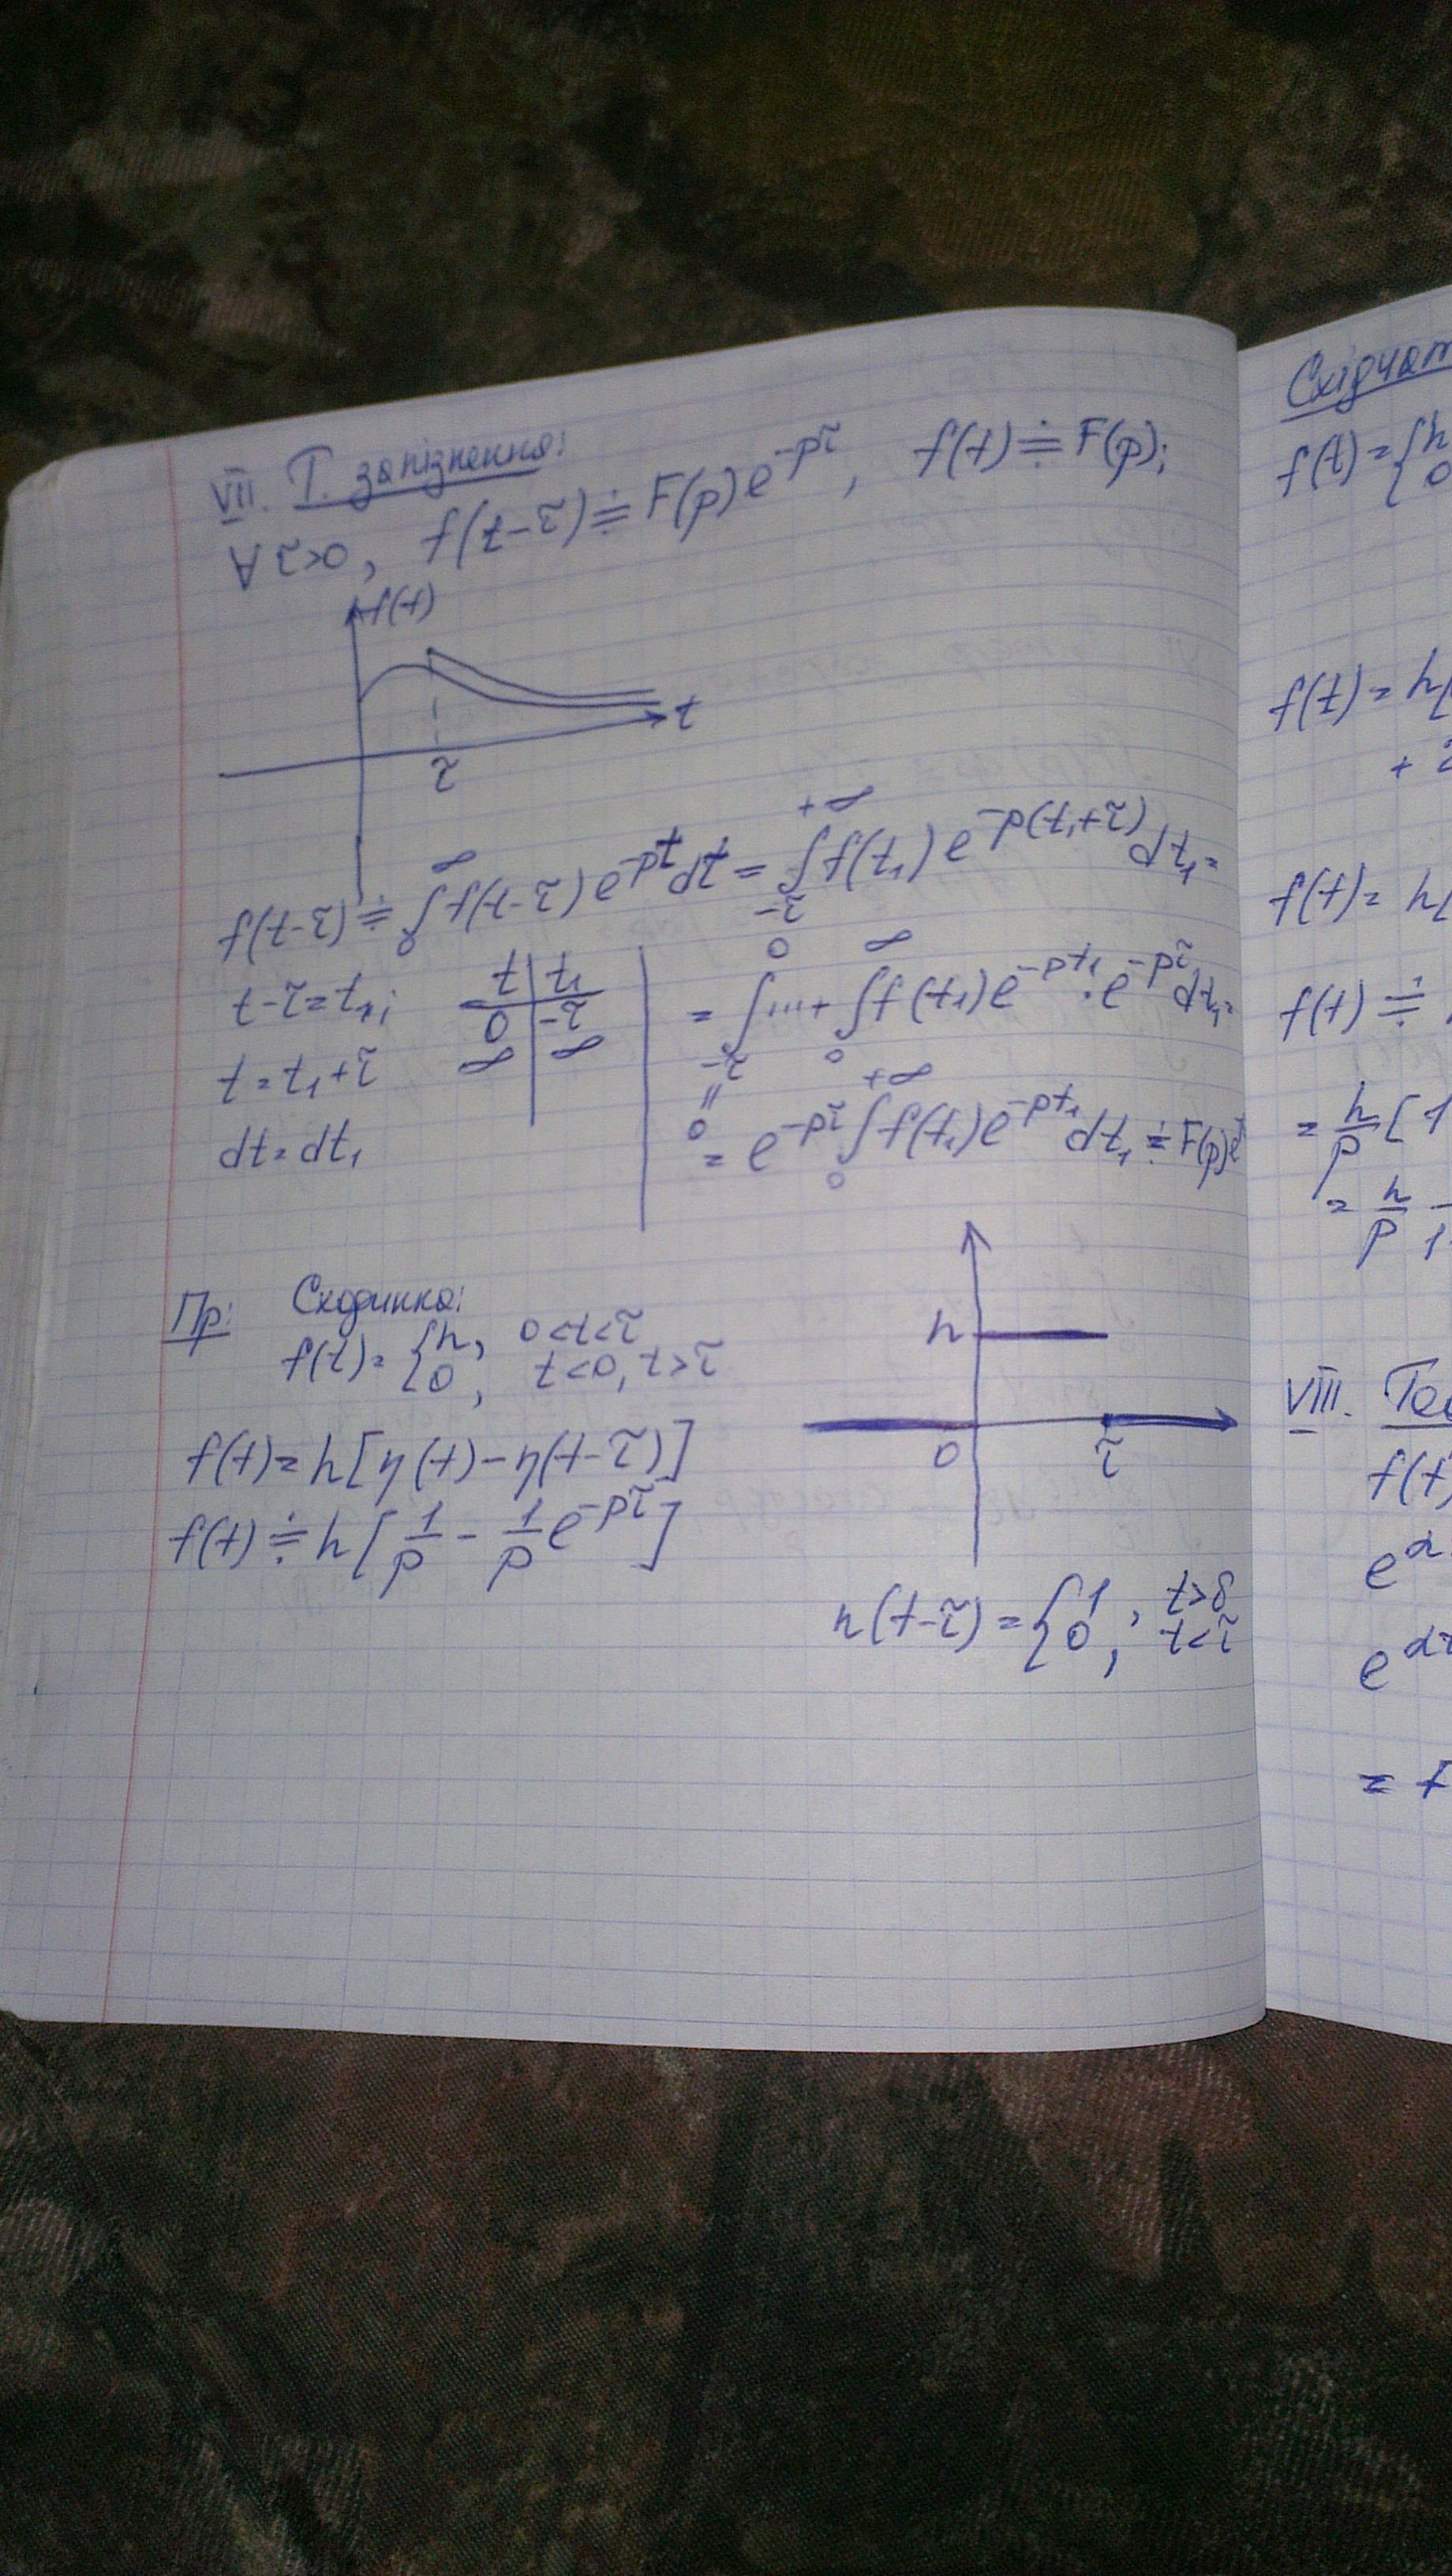 VII. Т. запізнення:
∀ τ<0, f(t-τ) ≑ F(p)e^{-pτ}, f(t) ≑ F(p);
f(t)
t
τ
f(t-τ) ≑ ∫_0^∞ f(t-τ) e^{-pt}dt = ∫_{-τ}^{+∞} f(t₁) e^{-p(t₁+τ)}dt₁ =
t-τ=t₁;
t | t₁
0 | -τ
∞ | ∞
t = t₁+τ
dt = dt₁
= ∫_{-τ}^0 ... + ∫_0^∞ f(t₁)e^{-pt₁}·e^{-pτ}dt₁ =
||
0
= e^{-pτ} ∫_0^{+∞} f(t₁)e^{-pt₁}dt₁ ≑ F(p)e
Пр: Сходинка:
f(t) = { h, 0<t<τ
0, t<0, t>τ
h
0
τ
f(t) = h[η(t) - η(t-τ)]
f(t) ≑ h[1/p - 1/p e^{-pτ}]
η(t-τ) = { 1, t>δ
0, t<τ
Східчат
f(t) = { h
0
f(t) = h[
+ 2
f(t) = h[
f(t) ≑
= h/p [1
= h/p 1
VIII. Те
f(t)
e^α
e^α
= F